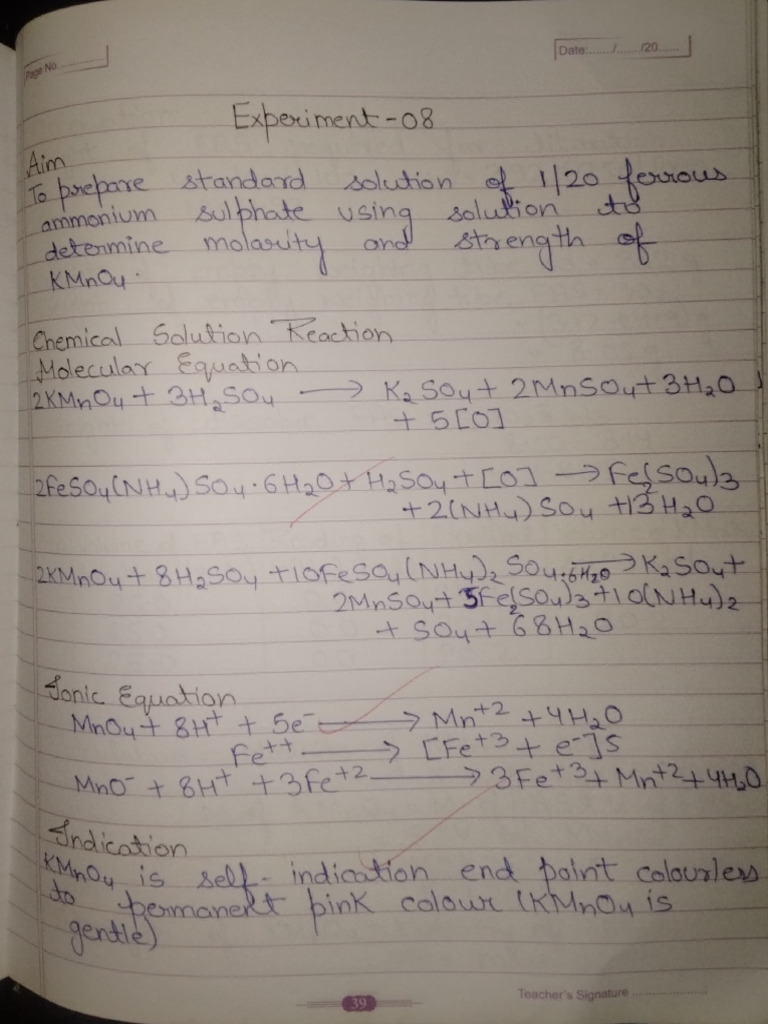 Page No. ............
Date:....../....../20......
Experiment-08
Aim
To prepare standard solution of 1/20 ferrous
ammonium sulphate using solution to
determine molarity and strength of
KMnO4.
Chemical Solution Reaction
Molecular Equation
2KMnO4 + 3H2SO4 → K2SO4 + 2MnSO4 + 3H2O
+ 5[O]
2FeSO4(NH4)SO4·6H2O + H2SO4 + [O] → Fe2(SO4)3
+ 2(NH4)SO4 + 13H2O
2KMnO4 + 8H2SO4 + 10FeSO4(NH4)2 SO4·6H2O → K2SO4 +
2MnSO4 + 5Fe2(SO4)3 + 10(NH4)2
+ SO4 + 68H2O
Ionic Equation
MnO4 + 8H+ + 5e- → Mn+2 + 4H2O
Fe++ → [Fe+3 + e-]5
MnO- + 8H+ + 3Fe+2 → 3Fe+3 + Mn+2 + 4H2O
Indication
KMnO4 is self-indication end point colourless
to permanent pink colour (KMnO4 is
gentle)
39
Teacher's Signature ....................